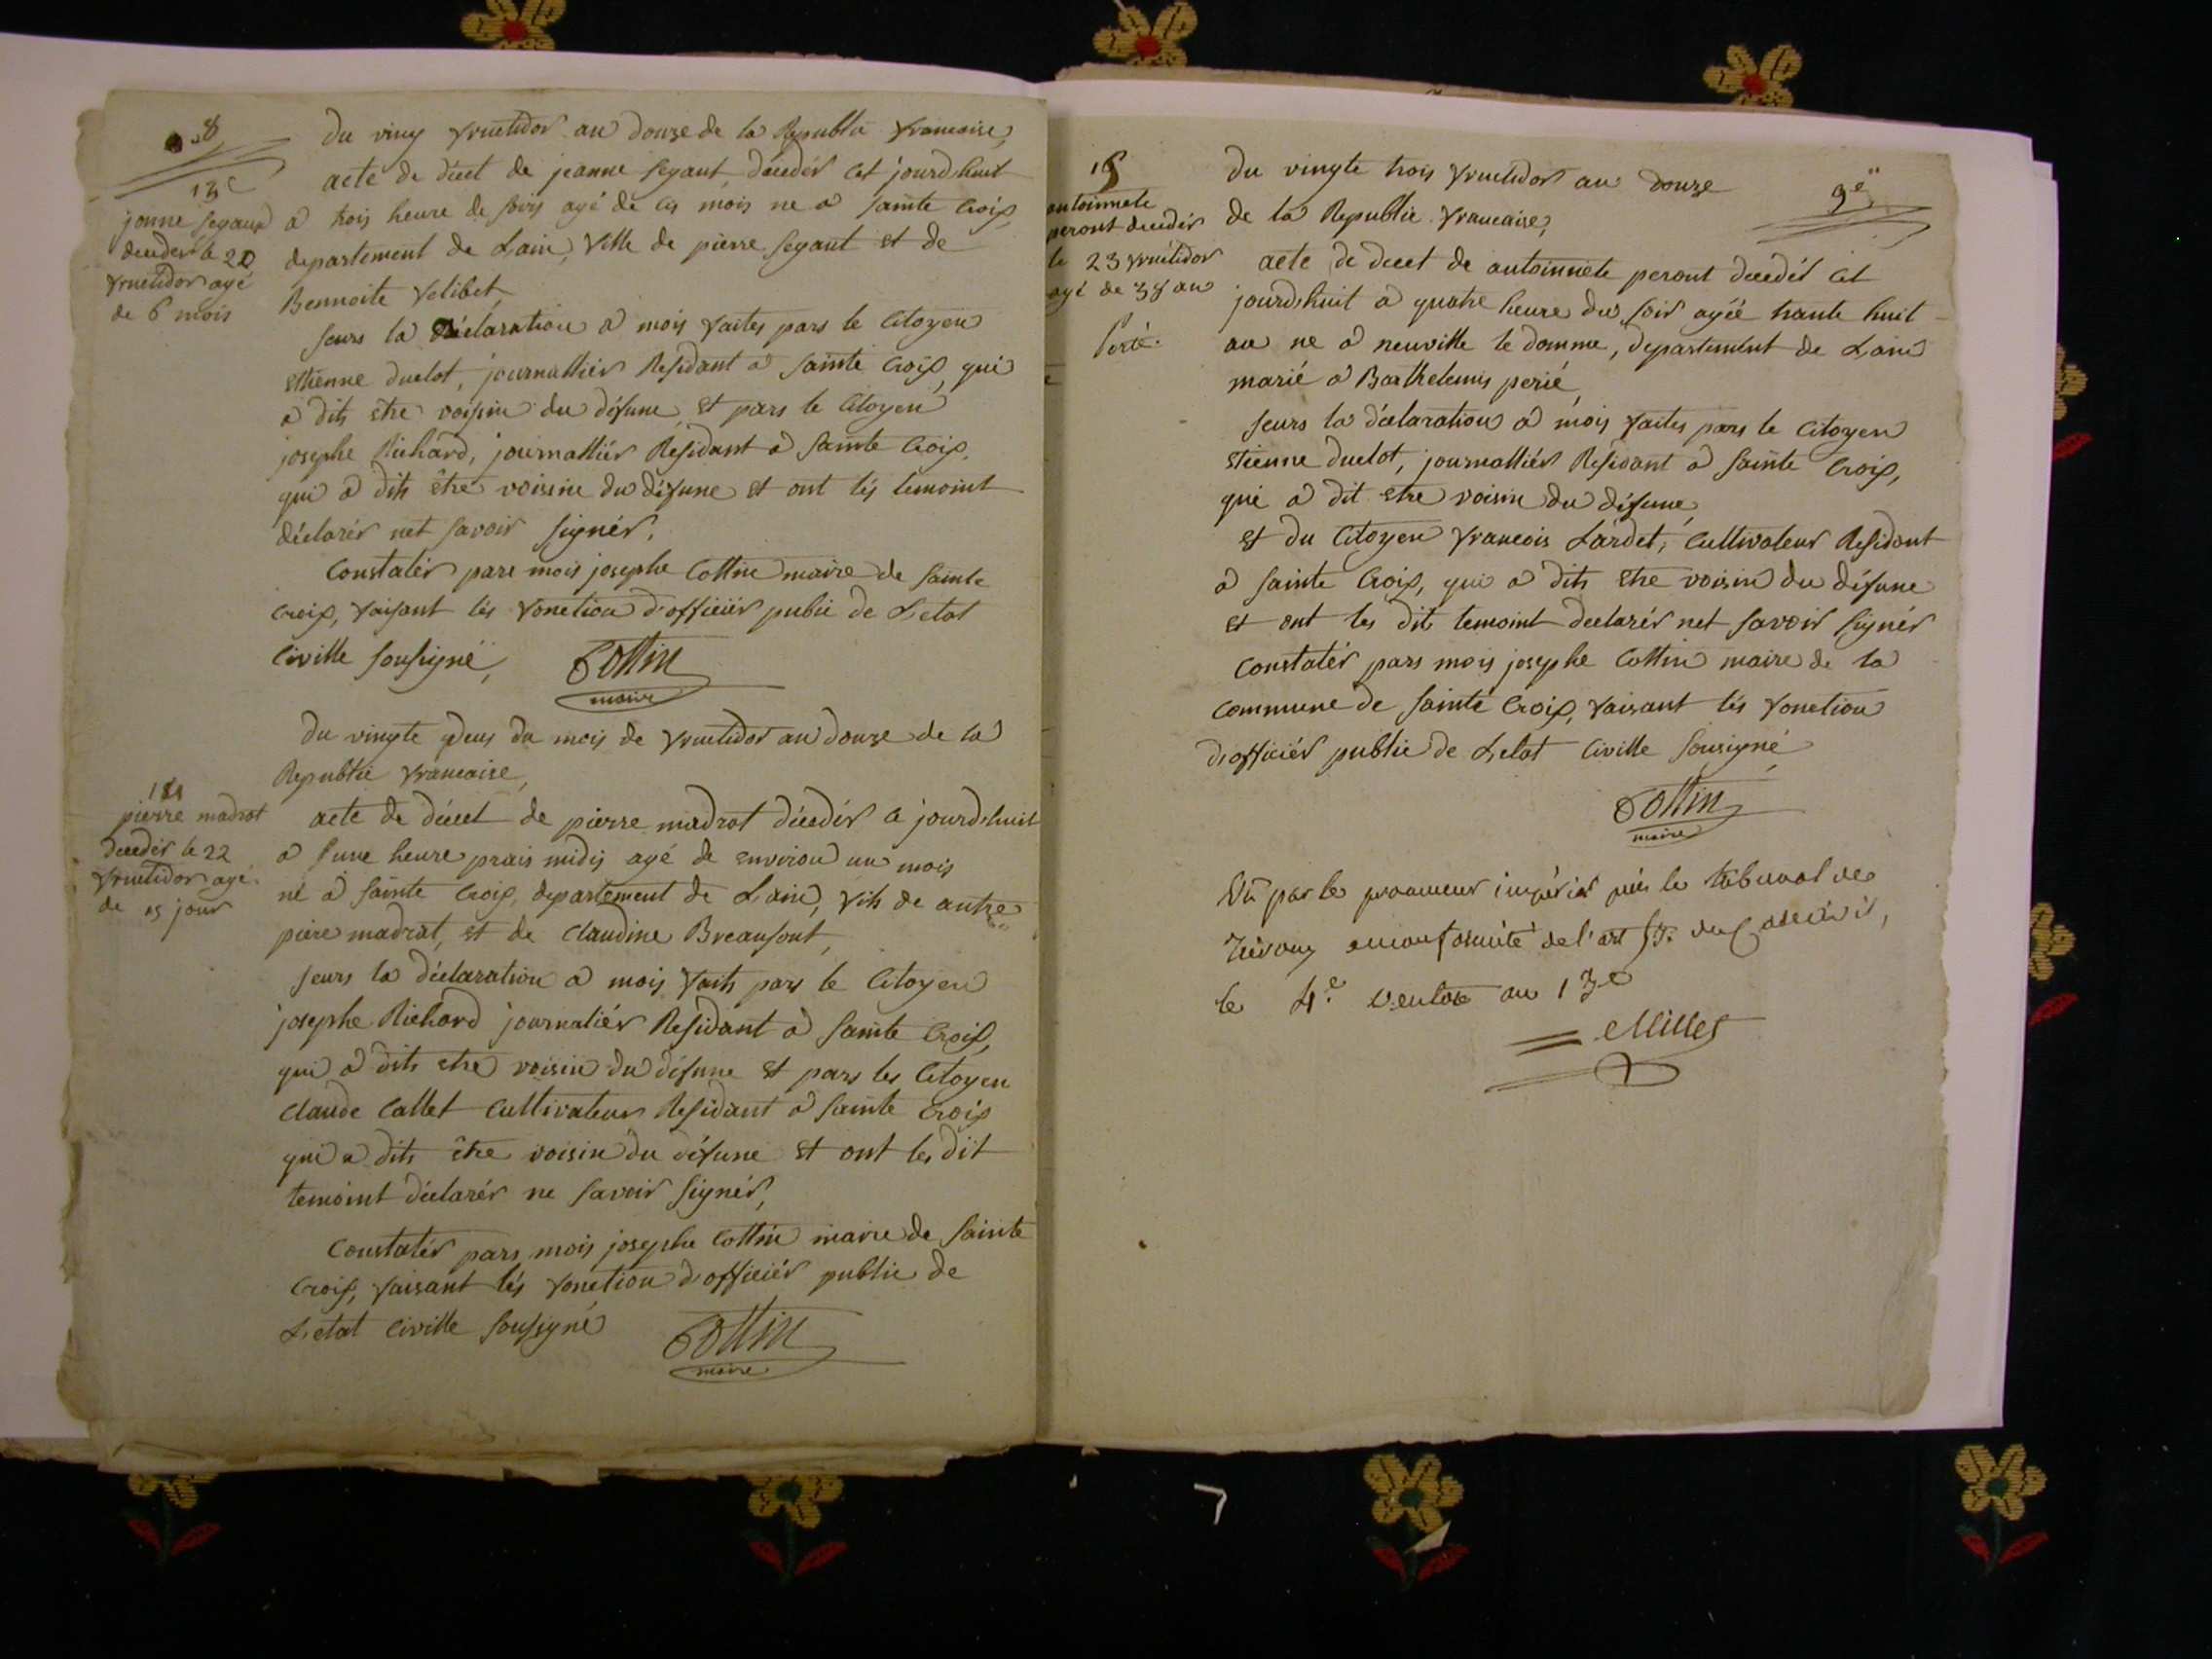 8
13e
jeanne segaud
deceder le 20
fructidor agé
de 6 mois
du ving fructidor an douze de la Republic francaise,
acte de décet de jeanne segaut, décedér cet jourdhuit
a trois heure de soirs agé de cis mois ne a sainte Croix,
departement de Lain, fille de pierre segaut et de
Bennoite felibet,
seurs la déclaration a mois faites pars le Citoyen
ettienne duclot, journallier Residant a sainte Croix, qui
a dits etre voissin du défune, et pars le Citoyen
josephe Richard, journalliér Residant a sainte Croix,
qui a dits être voissin du défune et ont lés temoint
déclarér net savoir signér,
Constatér pars mois josephe Cottin maire de sainte
Croix, faisant lés fonction d'officiér public de L'etat
Civille sousigné,
Cottin
maire
14
pierre madrot
décedér le 22
fructidor agé
de 15 jour
du vingte deus du mois de fructidor an douze de la
Republic francaise,
acte de décet de pierre madrot décedér ce jourdhuit
a l'une heure prais midis agé de environ un mois
né a sainte Croix, departement de Lain, fils de autre
piere madrat, et de Claudine Breausont,
seurs la déclaration a mois faits pars le Citoyen
josephe Richard journaliér Residant a sainte Croix,
qui a dits etre voisin du défune et pars les Citoyen
Claude Collet Cultivateur Residant a sainte Croix
qui a dits être voisin du défune et ont les dit
temoint déclarér ne savoir signér,
Constatér pars mois josephe Cottin maire de sainte
Croix, faisant lés fonction d'officiér public de
L'etat Civille soussigné
Cottin
maire
15
antoinnete
peront decedér
le 23 fructidor
agé de 38 an
9e
du vingte trois fructidor an douze
de la Republic francaise,
acte de decet de antoinnete peront decedér cet
jourdhuit a quatre heure du soir agée trante huit
an ne a neuville le domme, departement de Lain
marié a Barthelemis perié,
seurs la déclaration a mois faites pars le Citoyen
etienne duclot, journalliér Residant a sainte Croix,
qui a dit etre voisin du défune,
et du Citoyen francois Lardet, Cultivateur Residant
a sainte Croix, qui a dits etre voisin du défune
et ont les dit temoint declarér net savoir signér
Constatér pars mois josephe Cottin maire de la
Commune de sainte Croix, faisant lés fonction
d'officiér public de L'etat Civille sousigné
Cottin
maire
Vu par le procureur impérial près le tribunal de
Trévoux en conformité de l'art 53 du Code Civil,
le 4e ventose an 13e
Millet